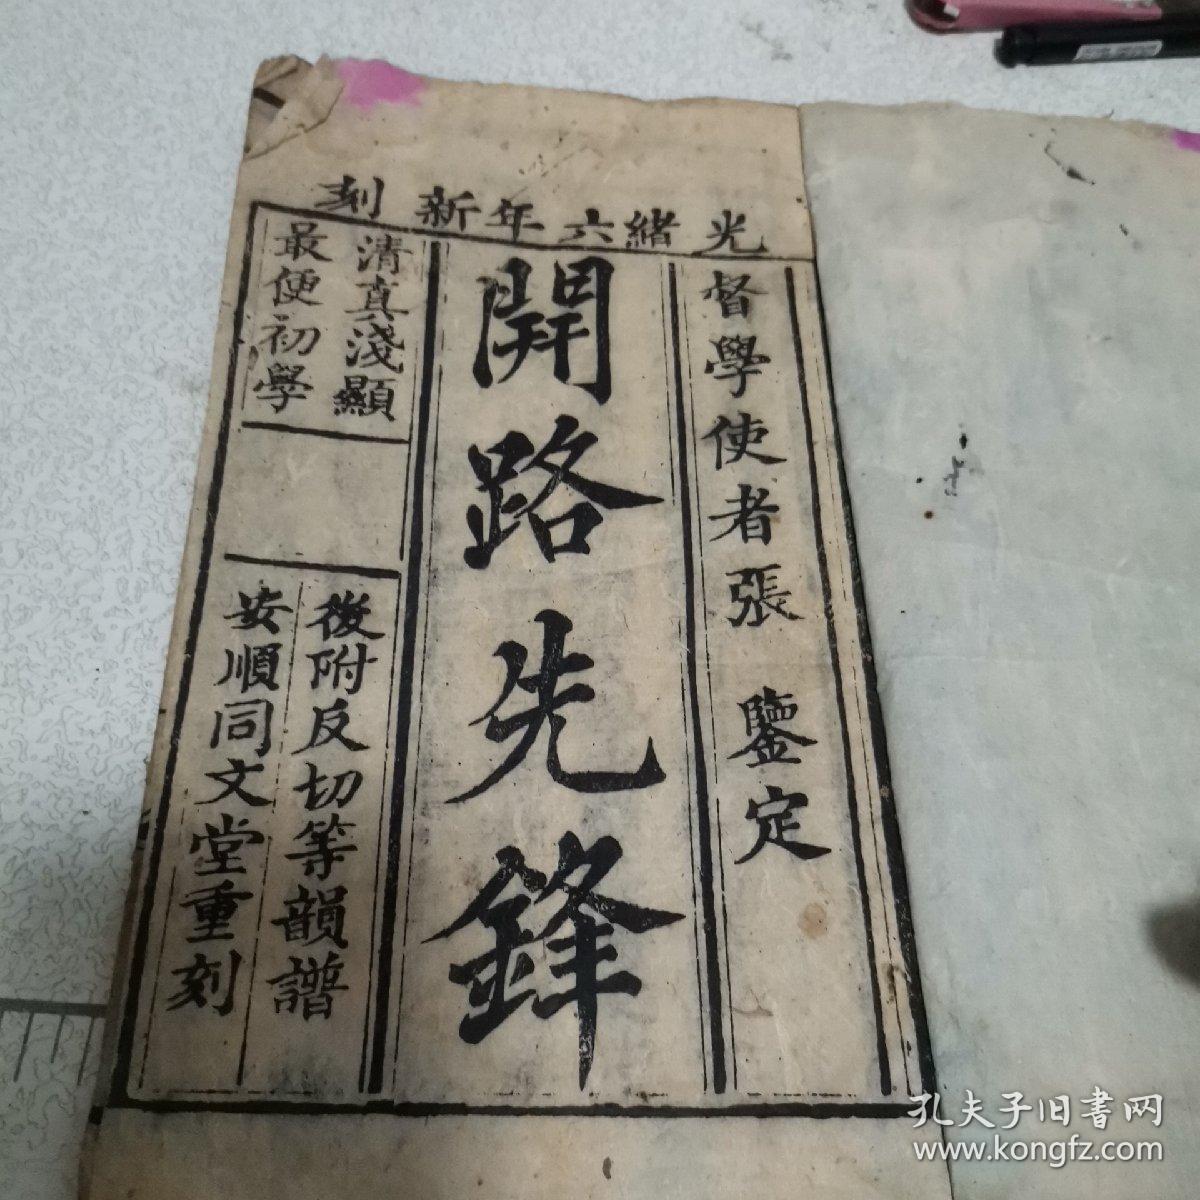 光緒六年新刻
督學使者張 鑒定
開路先鋒
清真淺顯
最便初學
後附反切等韻譜
安順同文堂重刻
孔夫子旧書网
www.kongfz.com